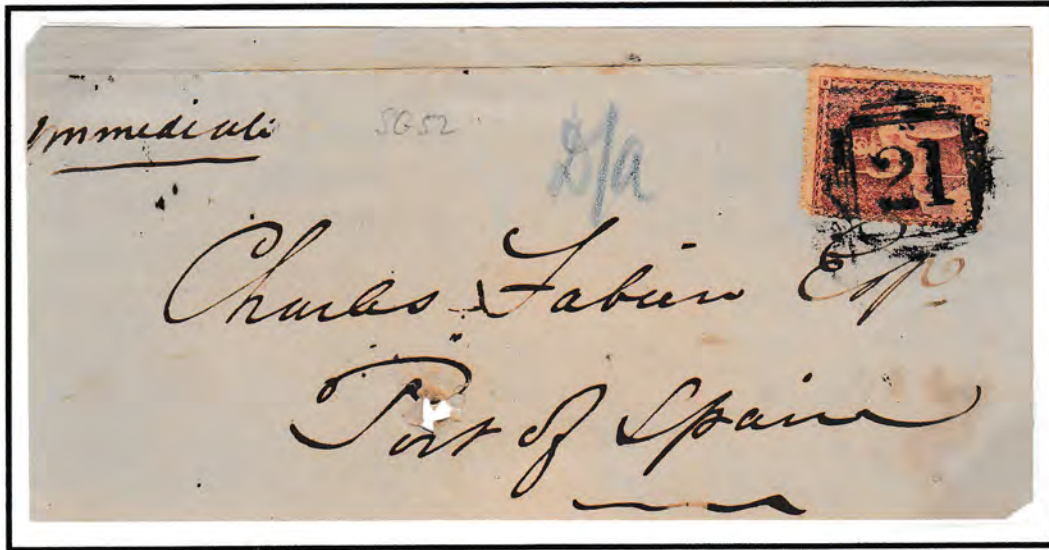 Immediate
SG52
21
Charles Fabien Esqre
Port of Spain